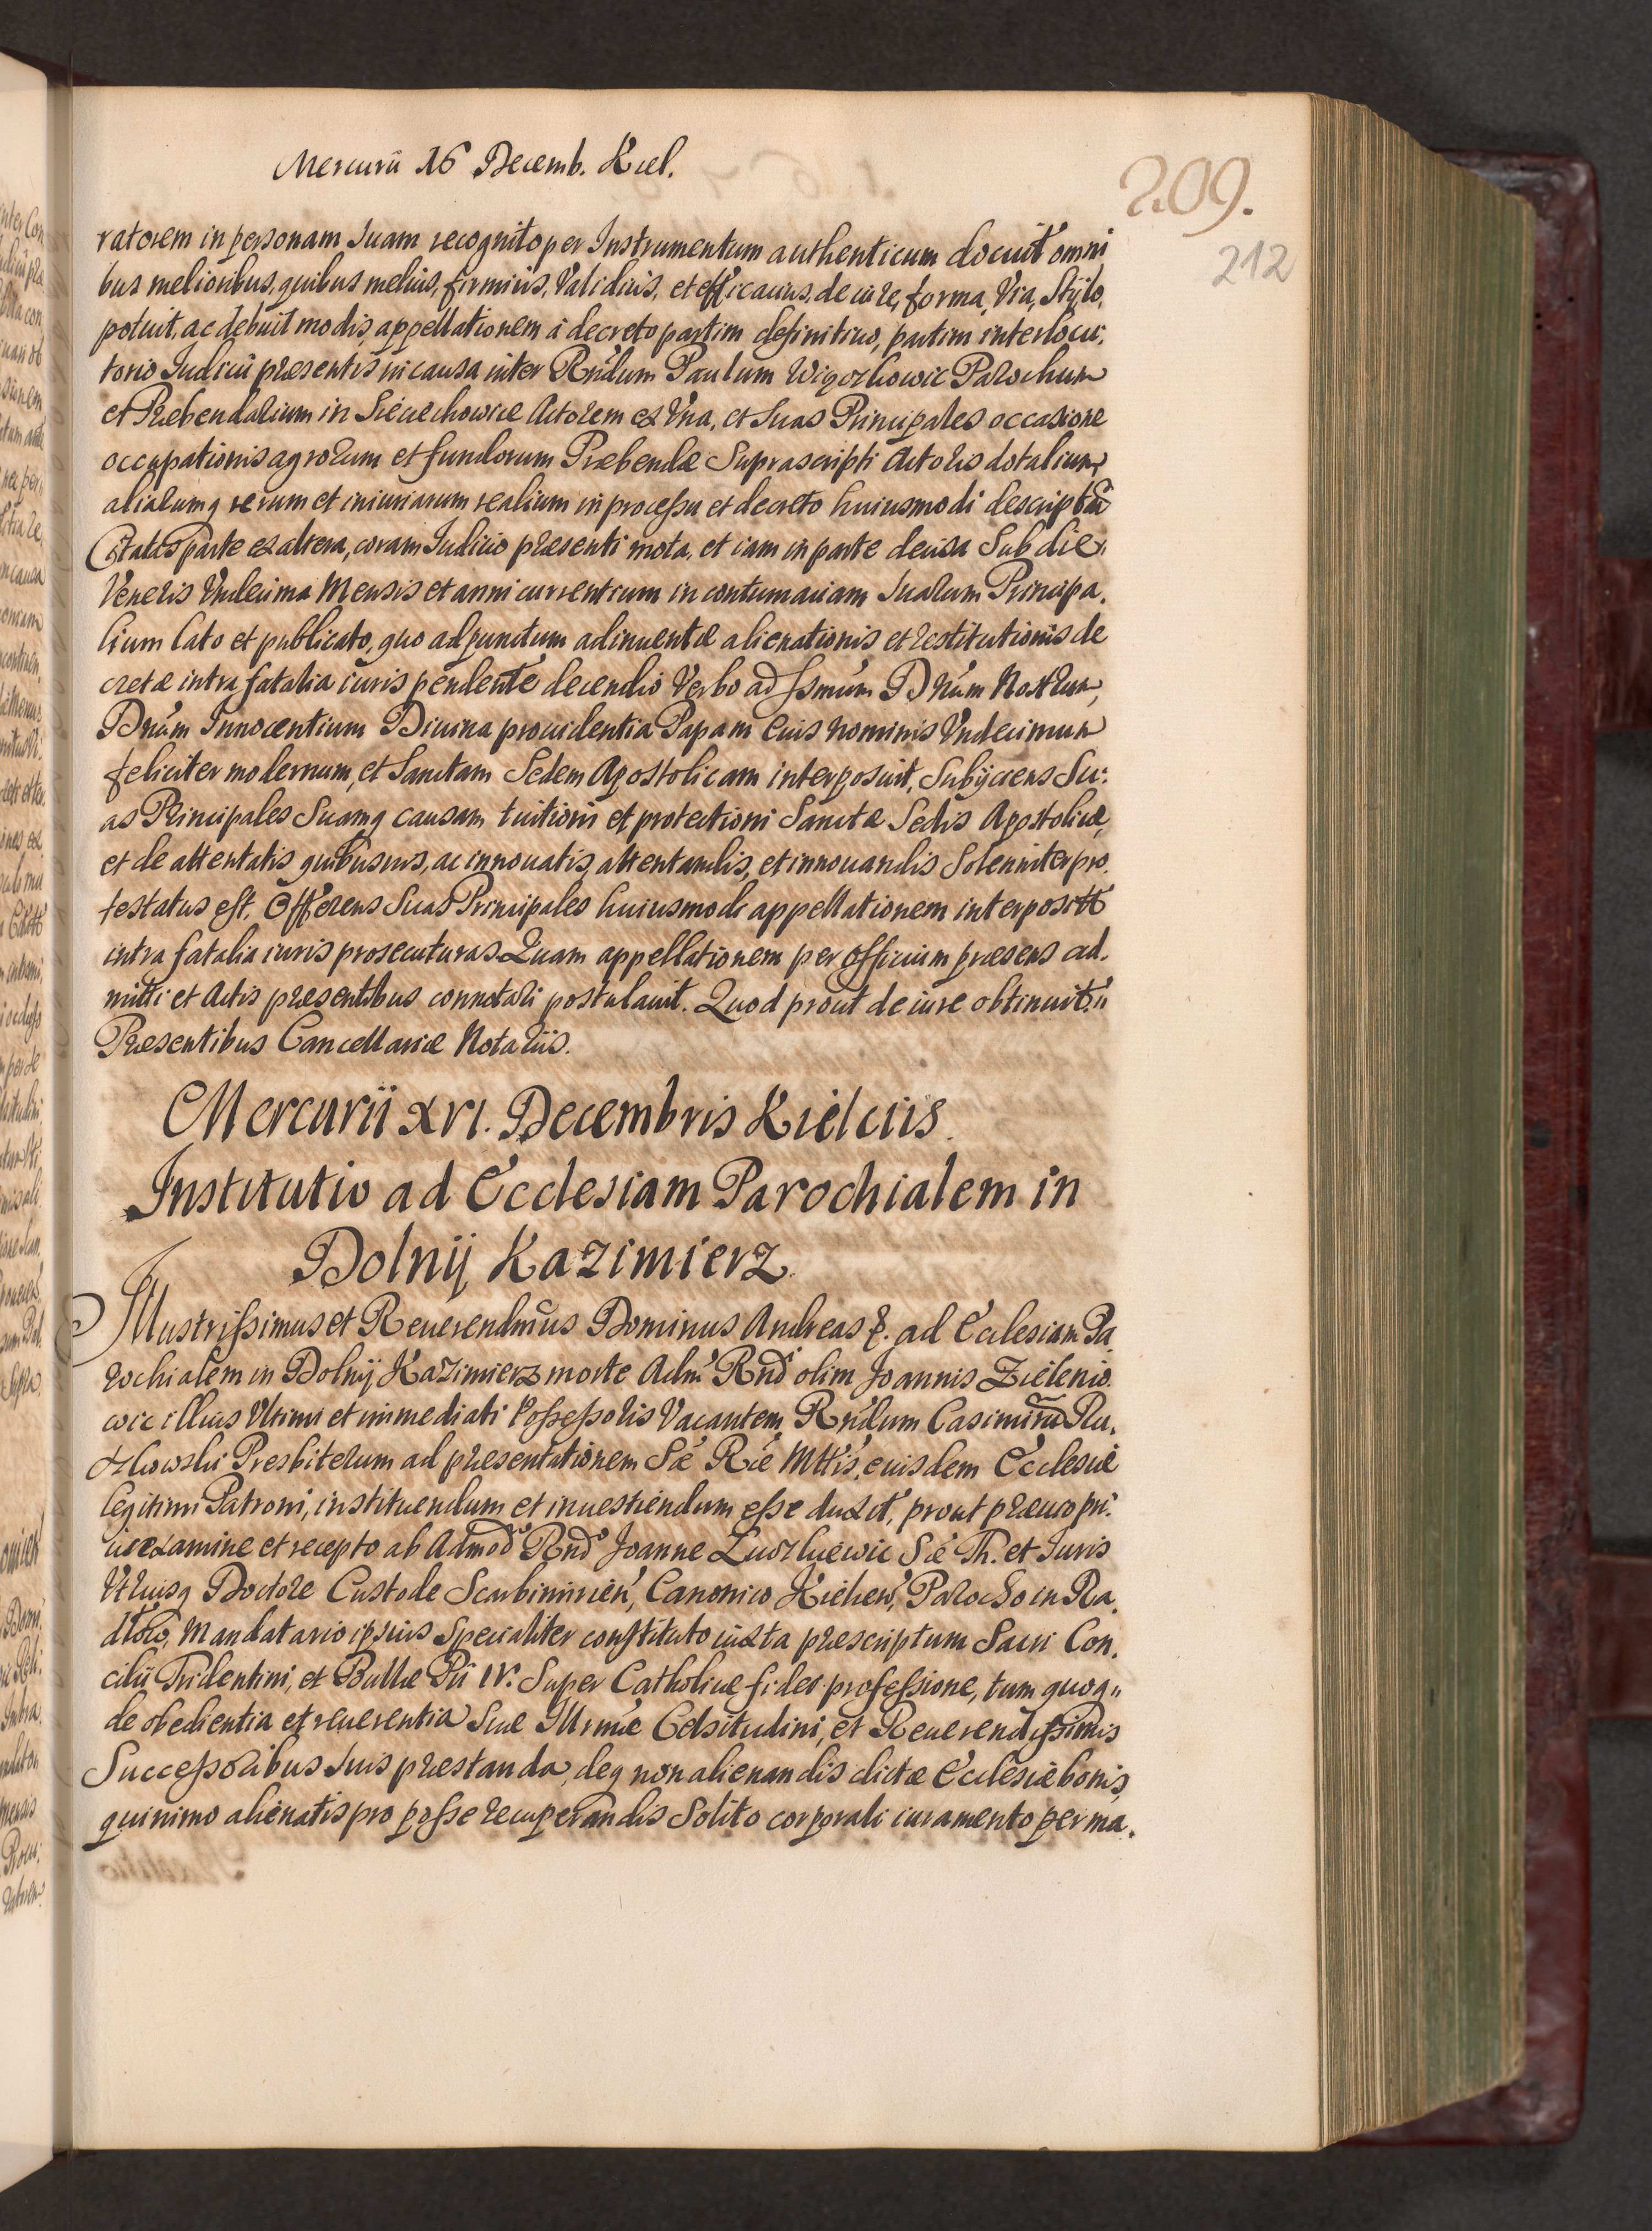 Mercurii 16 Decemb. Kiel.
209.
212
ratorem in personam suam recognito per Instrumentum authenticum docuit omni
bus melioribus, quibus melius, firmius, Validius, et efficacius, de iure, forma, Via, Stylo,
potuit, ac debuit modis, appellationem à decreto partim definitiuo, partim interlocu:
torio Iudicii præsentis in causa inter Rńdum Paulum Parochum
et Præbendarium in Sieciechowice Actorem ex Vna, et suas Principales occasione
occupationis agrorum et fundorum Præbendæ Suprascripti Actoris dotalium,
aliarumq rerum et iniuriarum realium in processu et decreto huiusmodi descriptarũ
Citatas parte ex altera, coram Iudicio præsenti mota, et iam in parte decisa Sub die
Veneris Vndecima Mensis et anni currentium in contumaciam suarum Principa,
lium lato et publicato, quo ad punctum adinuentæ alienationis et restitutionis de
cretæ intra fatalia iuris pendente decendio Verbo ad Ssmúm Dnúm Nostrum,
Dnúm Innocentium Diuina prouidentia Papam Eius nominis Vndecimum
feliciter modernum, et Sanctam Sedem Apostolicam interposuit, Subijciens Su:
as Principales Suamq causam tuitioni et protectioni Sanctæ Sedis Apostolicæ,
et de attentatis quibusuis, ac innouatis, attentandis, et innouandis Solenniter pro,
testatus est. Offerens Suas Principales huiusmodi appellationem interposittã
intra fatalia iuris prosecuturas. Quam appellationem per Officium præsens ad,
mitti et Actis præsentibus connotari postulauit. Quod prout de iure obtinuit.
Præsentibus Cancellariæ Notariis.
Mercurii XVI. Decembris Kielciis.
Institutio ad Ecclesiam Parochialem in
Dolnij Kazimierz.
Illustrissimus et Reuerendmús Dominus Andreas &. ad Ecclesiam Pa,
rochialem in Dolnij Kazimierz morte Adm̃ Rńdi olim Joannis Zielenio,
wic illius Vltimi et immediati Possessoris Vacantem, Rńdum Casimirum Ru,
Presbiterum ad præsentationem Sǽ Rǽ Mttis, eiusdem Ecclesiæ
legitimi Patroni, instituendum et inuestiendum esse duxit, prout præuio pri:
us examine et recepto ab Admod Rńdo Joanne Sǽ Th. et Iuris
Vtriusq Doctore Custode Scarbimirień, Canonico Kielceń, Parocho in Ra,
dłow, Mandatario ipsius Specialiter constituto iuxta præscriptum Sacri Con,
cilii Tridentini, et Bullæ Pii IV. Super Catholicæ fidei professione, tum quoq
de obedientia et reuerentia Suæ Illrmæ Celsitudini, et Reuerendissimis
Successoribus suis præstanda, deq non alienandis dictæ Ecclesiæ bonis,
quinimo alienatis pro posse recuperandis Solito corporali iuramento per ma,